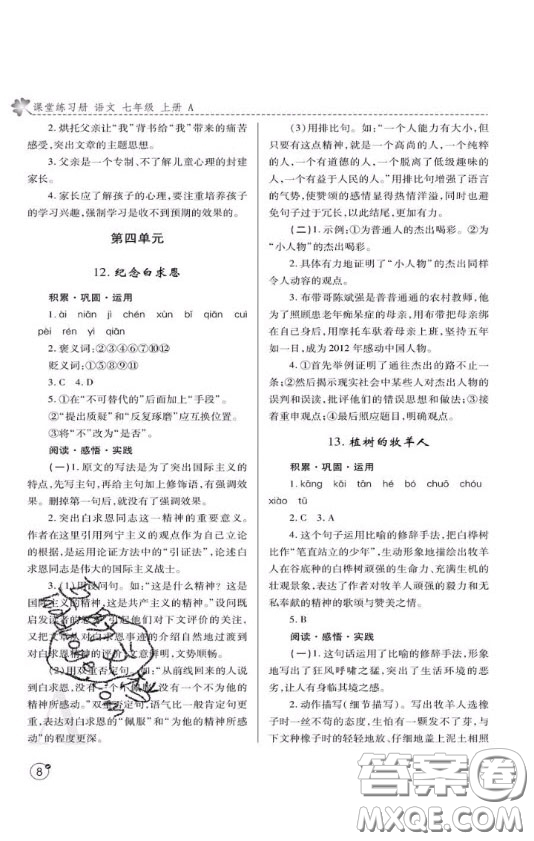 课堂练习册 语文 七年级 上册 A
2. 烘托父亲让“我”背书给“我”带来的痛苦
感受，突出文章的主题思想。
3. 父亲是一个专制、不了解儿童心理的封建
家长。
4. 家长应了解孩子的心理，要注重培养孩子
的学习兴趣，强制学习是收不到预期的效果的。
第四单元
12. 纪念白求恩
积累·巩固·运用
1. ài niǎn jì chén xùn bǐ qiān cuì
pèi rén yì qiè
2. 褒义词：②③④⑥⑦⑩⑫
贬义词：①⑤⑧⑨⑪
3. C 4. D
5. ①在“不可替代的”后面加上“手段”。
②“提出质疑”和“反复琢磨”应互换位置。
③将“不”改为“是否”。
阅读·感悟·实践
(一)1. 原文的写法是为了突出国际主义的
特点，先写主干，再给句子加上修饰语，有强调效
果。删掉第一句后，就没有了强调效果。
2. 突出白求恩同志这一精神的重要意义。
作者在这里引用列宁主义的观点作为自己立论
的根据，是运用论证方法中的“引证法”，论述白
求恩同志是伟大的国际主义战士。
3. (1)用设问句。如：“这是什么精神？这是
国际主义的精神，这是共产主义的精神。”设问既
启发读者的思考，引起他们对下文评价的关注，
又把文章从对白求恩事迹的介绍自然地过渡到
对白求恩精神的评价，文意鲜明，文势畅通。
(2)用双重否定句。如：“从前线回来的人说
到白求恩，没有一个不佩服，没有一个不为他的
精神所感动。”双重否定句，语气比一般肯定句更
重，表现了对白求恩的“佩服”和“为他的精神所
感动”的程度更深。
(3)用排比句。如：“一个人能力有大小，但
只要有这点精神，就是一个高尚的人，一个纯粹
的人，一个有道德的人，一个脱离了低级趣味的
人，一个有益于人民的人。”用排比句增强了语言
的气势，使赞颂的感情显得热情洋溢，同时为了
避免句子过于冗长，以此结尾，更加有力。
(二)1. 示例：①为普通人的杰出喝彩。②为
“小人物”的杰出喝彩。
2. 具体有力地证明了“小人物”的杰出同样
令人动容的观点。
3. 布带哥陈斌强是普普通通的农村教师，他
为了照顾患老年痴呆症的母亲，用布带把母亲绑
在自己身上，用摩托车驮着母亲上班，坚持五年
如一日，成为 2012 年感动中国人物。
4. ①首先举例证明了通往杰出的路不止一
条；②然后揭示现实社会中某些人对杰出人物的
误判和误读，批评他们的错误思想和做法；③接
着重申观点；④最后照应题目，明确观点。
13. 植树的牧羊人
积累·巩固·运用
1. kāng kǎi tān hé bó chuō chóu
xiào tǔ
2. C 3. A
4. 这个句子运用比喻的修辞手法，把白桦树
比作“笔直站立的少年”，生动形象地描绘出牧羊
人在谷底种的白桦树顽强的生命力、充满生机的
壮观景象，表达了作者对牧羊人顽强的毅力和无
私奉献的精神的歌颂与赞美之情。
5. B
阅读·感悟·实践
1. 这句话运用了比喻的修辞手法，形象地描
写出了狂风呼啸之猛，突出了生活环境的恶
劣，让人身临其境之感。
2. 动作描写(细节描写)。写出牧羊人选橡
子时一丝不苟的态度，生怕有一颗发不了芽，与
下文种橡子时的轻轻地放、仔细地盖上泥土相照
8
答案卷
MXQE.COM